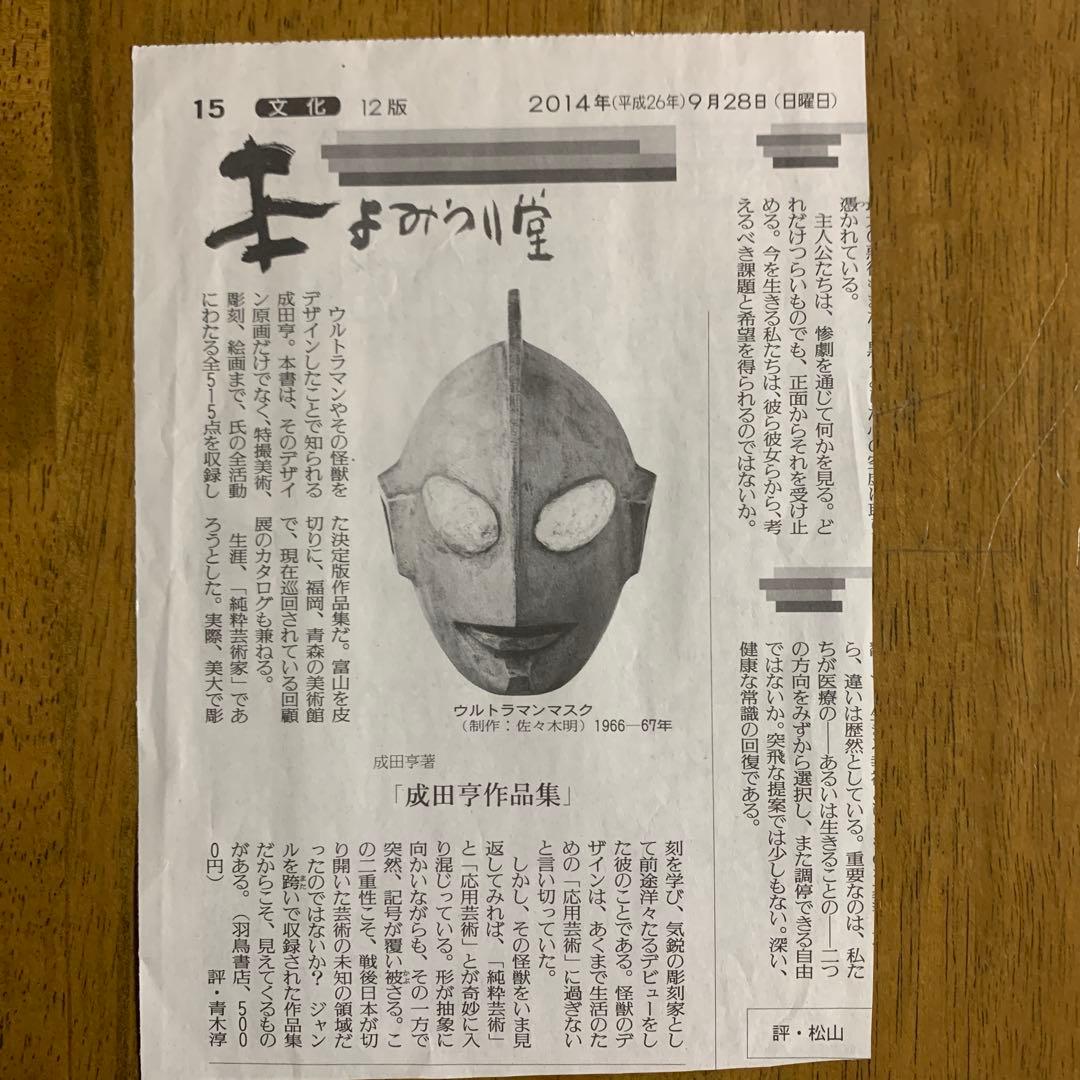 15 文化 12版
2014年(平成26年)9月28日(日曜日)
本よみうり堂
憑かれている。
主人公たちは、惨劇を通じて何かを見る。ど
れだけつらいものでも、正面からそれを受け止
める。今を生きる私たちは、彼ら彼女らから、考
えるべき課題と希望を得られるのではないか。
ら、違いは歴然としている。重要なのは、私た
ちが医療の――あるいは生きることの――二つ
の方向をみずから選択し、また調停できる自由
ではないか。突飛な提案では少しもない。深い、
健康な常識の回復である。
評・松山
ウルトラマンやその怪獣を
デザインしたことで知られる
成田亨。本書は、そのデザイ
ン原画だけでなく、特撮美術、
彫刻、絵画まで、氏の全活動
にわたる全515点を収録し
た決定版作品集だ。富山を皮
切りに、福岡、青森の美術館
で、現在巡回されている回顧
展のカタログも兼ねる。
生涯、「純粋芸術家」であ
ろうとした。実際、美大で彫
ウルトラマンマスク
(制作:佐々木明)1966―67年
成田亨著
「成田亨作品集」
刻を学び、気鋭の彫刻家とし
て前途洋々たるデビューをし
た彼のことである。怪獣のデ
ザインは、あくまで生活のた
めの「応用芸術」に過ぎない
と言い切っていた。
しかし、その怪獣をいま見
返してみれば、「純粋芸術」
と「応用芸術」とが奇妙に入
り混じっている。形が抽象に
向かいながらも、その一方で
突然、記号が覆い被さる。こ
の二重性こそ、戦後日本が切
り開いた芸術の未知の領域だ
ったのではないか? ジャン
ルを跨いで収録された作品集
だからこそ、見えてくるもの
がある。(羽鳥書店、500
0円) 評・青木淳